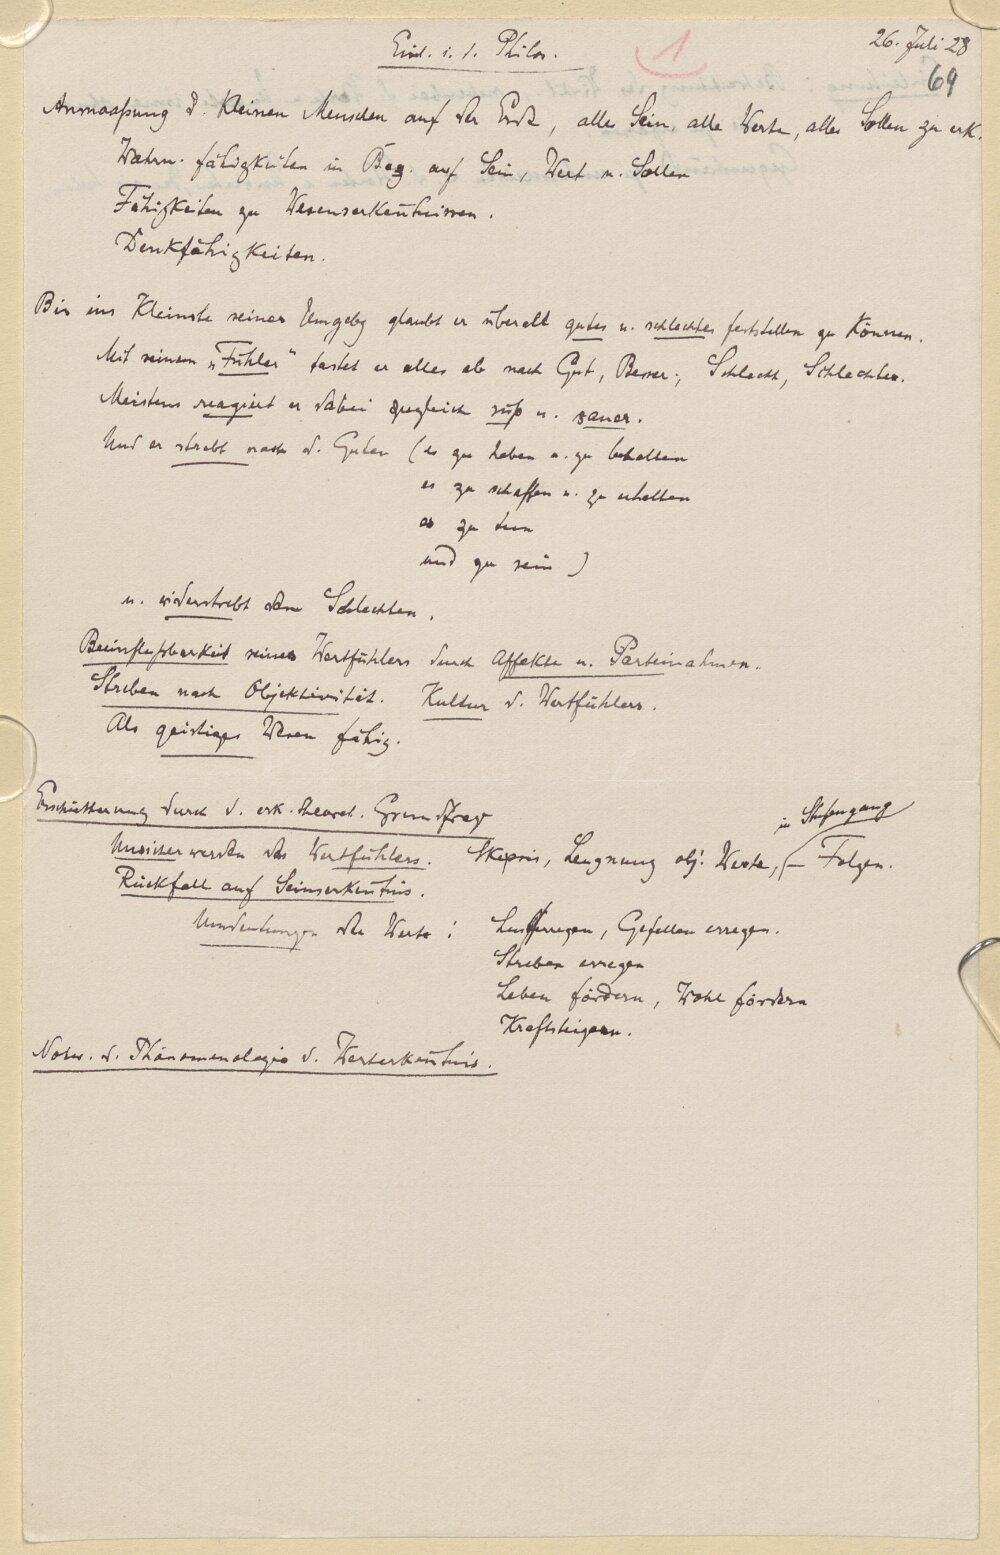 Einl. i. d. Philos.
1
26. Juli 28
69
Anmaaßung d. kleinen Menschen auf der Erde, alles Sein, alle Werte, alles Sollen zu erk.
Wahrn. fähigkeiten in Bez. auf Sein, Wert u. Sollen
Fähigkeiten zu Wesenserkenntnissen.
Denkfähigkeiten.
Bis ins Kleinste seiner Umgebg glaubt er überall gutes u. schlechtes feststellen zu können.
Mit seinem „Fühler" tastet er alles ab nach Gut, Besser; Schlecht, Schlechter.
Meistens reagiert er dabei zugleich süß u. sauer.
Und er strebt nach d. Guten (es zu haben u. zu behalten
es zu schaffen u. zu erhalten
es zu tun
und zu sein)
u. widerstrebt dem Schlechten.
Beeinflußbarkeit seines Wertfühlers durch Affekte u. Parteinahmen.
Streben nach Objektivität. Kultur d. Wertfühlers.
Als geistiges Wesen fähig.
Erschütterung durch d. erk. theoret. Grundfrage
in Stufengang
Unsicherwerden des Wertfühlers. Skepsis, Leugnung obj. Werte, – Folgen.
Rückfall auf Seinserkenntnis.
Umdeutungen der Werte: Lust erregen, Gefallen erregen.
Streben erregen
Leben fördern, Wohl fördern
Kraftsteigern.
Notw. d. Phänomenologie d. Werterkenntnis.